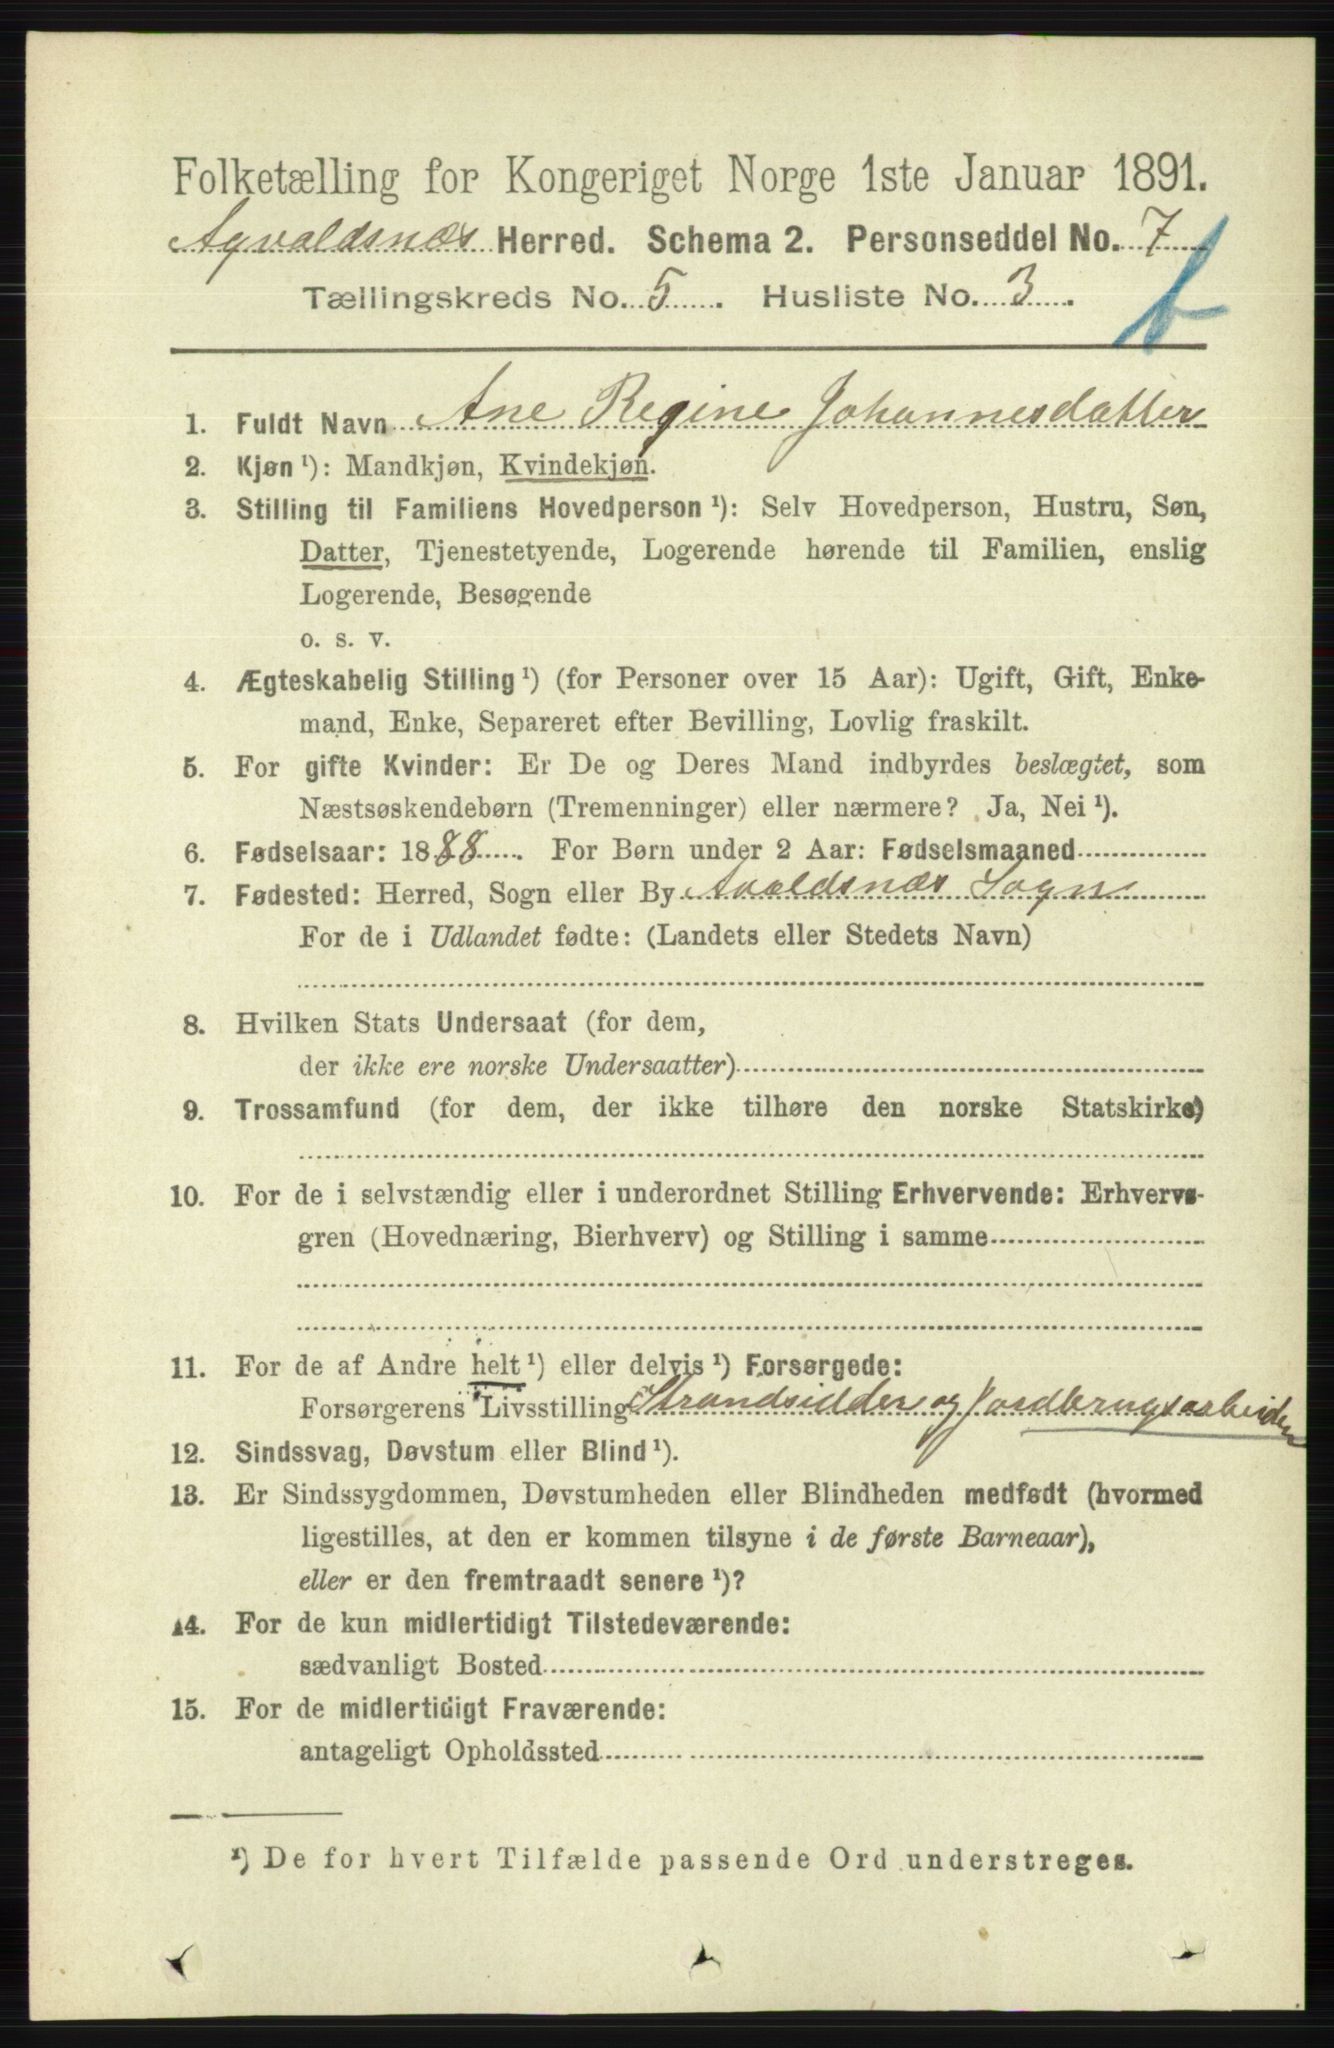 Folketælling for Kongeriget Norge 1ste Januar 1891.
Agvaldsnæs Herred. Schema 2. Personseddel No. 7
Tællingskreds No. 5. Husliste No. 3.
b
1. Fuldt Navn Ane Regine Johannesdatter
2. Kjøn ¹): Mandkjøn, Kvindekjøn.
3. Stilling til Familiens Hovedperson ¹): Selv Hovedperson, Hustru, Søn,
Datter, Tjenestetyende, Logerende hørende til Familien, enslig
Logerende, Besøgende
o. s. v.
4. Ægteskabelig Stilling ¹) (for Personer over 15 Aar): Ugift, Gift, Enke-
mand, Enke, Separeret efter Bevilling, Lovlig fraskilt.
5. For gifte Kvinder: Er De og Deres Mand indbyrdes beslægtet, som
Næstsøskendebørn (Tremenninger) eller nærmere? Ja, Nei ¹).
6. Fødselsaar: 1888. For Børn under 2 Aar: Fødselsmaaned
7. Fødested: Herred, Sogn eller By Avaldsnæs Sogn
For de i Udlandet fødte: (Landets eller Stedets Navn)
8. Hvilken Stats Undersaat (for dem,
der ikke ere norske Undersaatter)
9. Trossamfund (for dem, der ikke tilhøre den norske Statskirke)
10. For de i selvstændig eller i underordnet Stilling Erhvervende: Erhvervs-
gren (Hovednæring, Bierhverv) og Stilling i samme
11. For de af Andre helt ¹) eller delvis ¹) Forsørgede:
Forsørgerens Livsstilling Strandsidder og Jordbrugsarbeider
12. Sindssvag, Døvstum eller Blind ¹).
13. Er Sindssygdommen, Døvstumheden eller Blindheden medfødt (hvormed
ligestilles, at den er kommen tilsyne i de første Barneaar),
eller er den fremtraadt senere ¹)?
14. For de kun midlertidigt Tilstedeværende:
sædvanligt Bosted
15. For de midlertidigt Fraværende:
antageligt Opholdssted
¹) De for hvert Tilfælde passende Ord understreges.